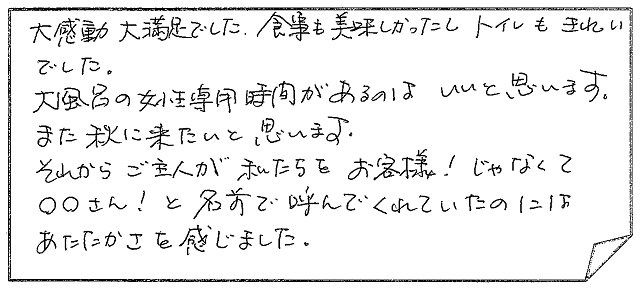 大感動 大満足でした。食事も美味しかったし トイレも きれい
でした。
大風呂の女性専用時間があるのは いいと思います。
また秋に来たいと思います。
それから ご主人が 私たちを お客様！じゃなくて
〇〇さん！と 名前で呼んでくれていたのには
あたたかさを感じました。